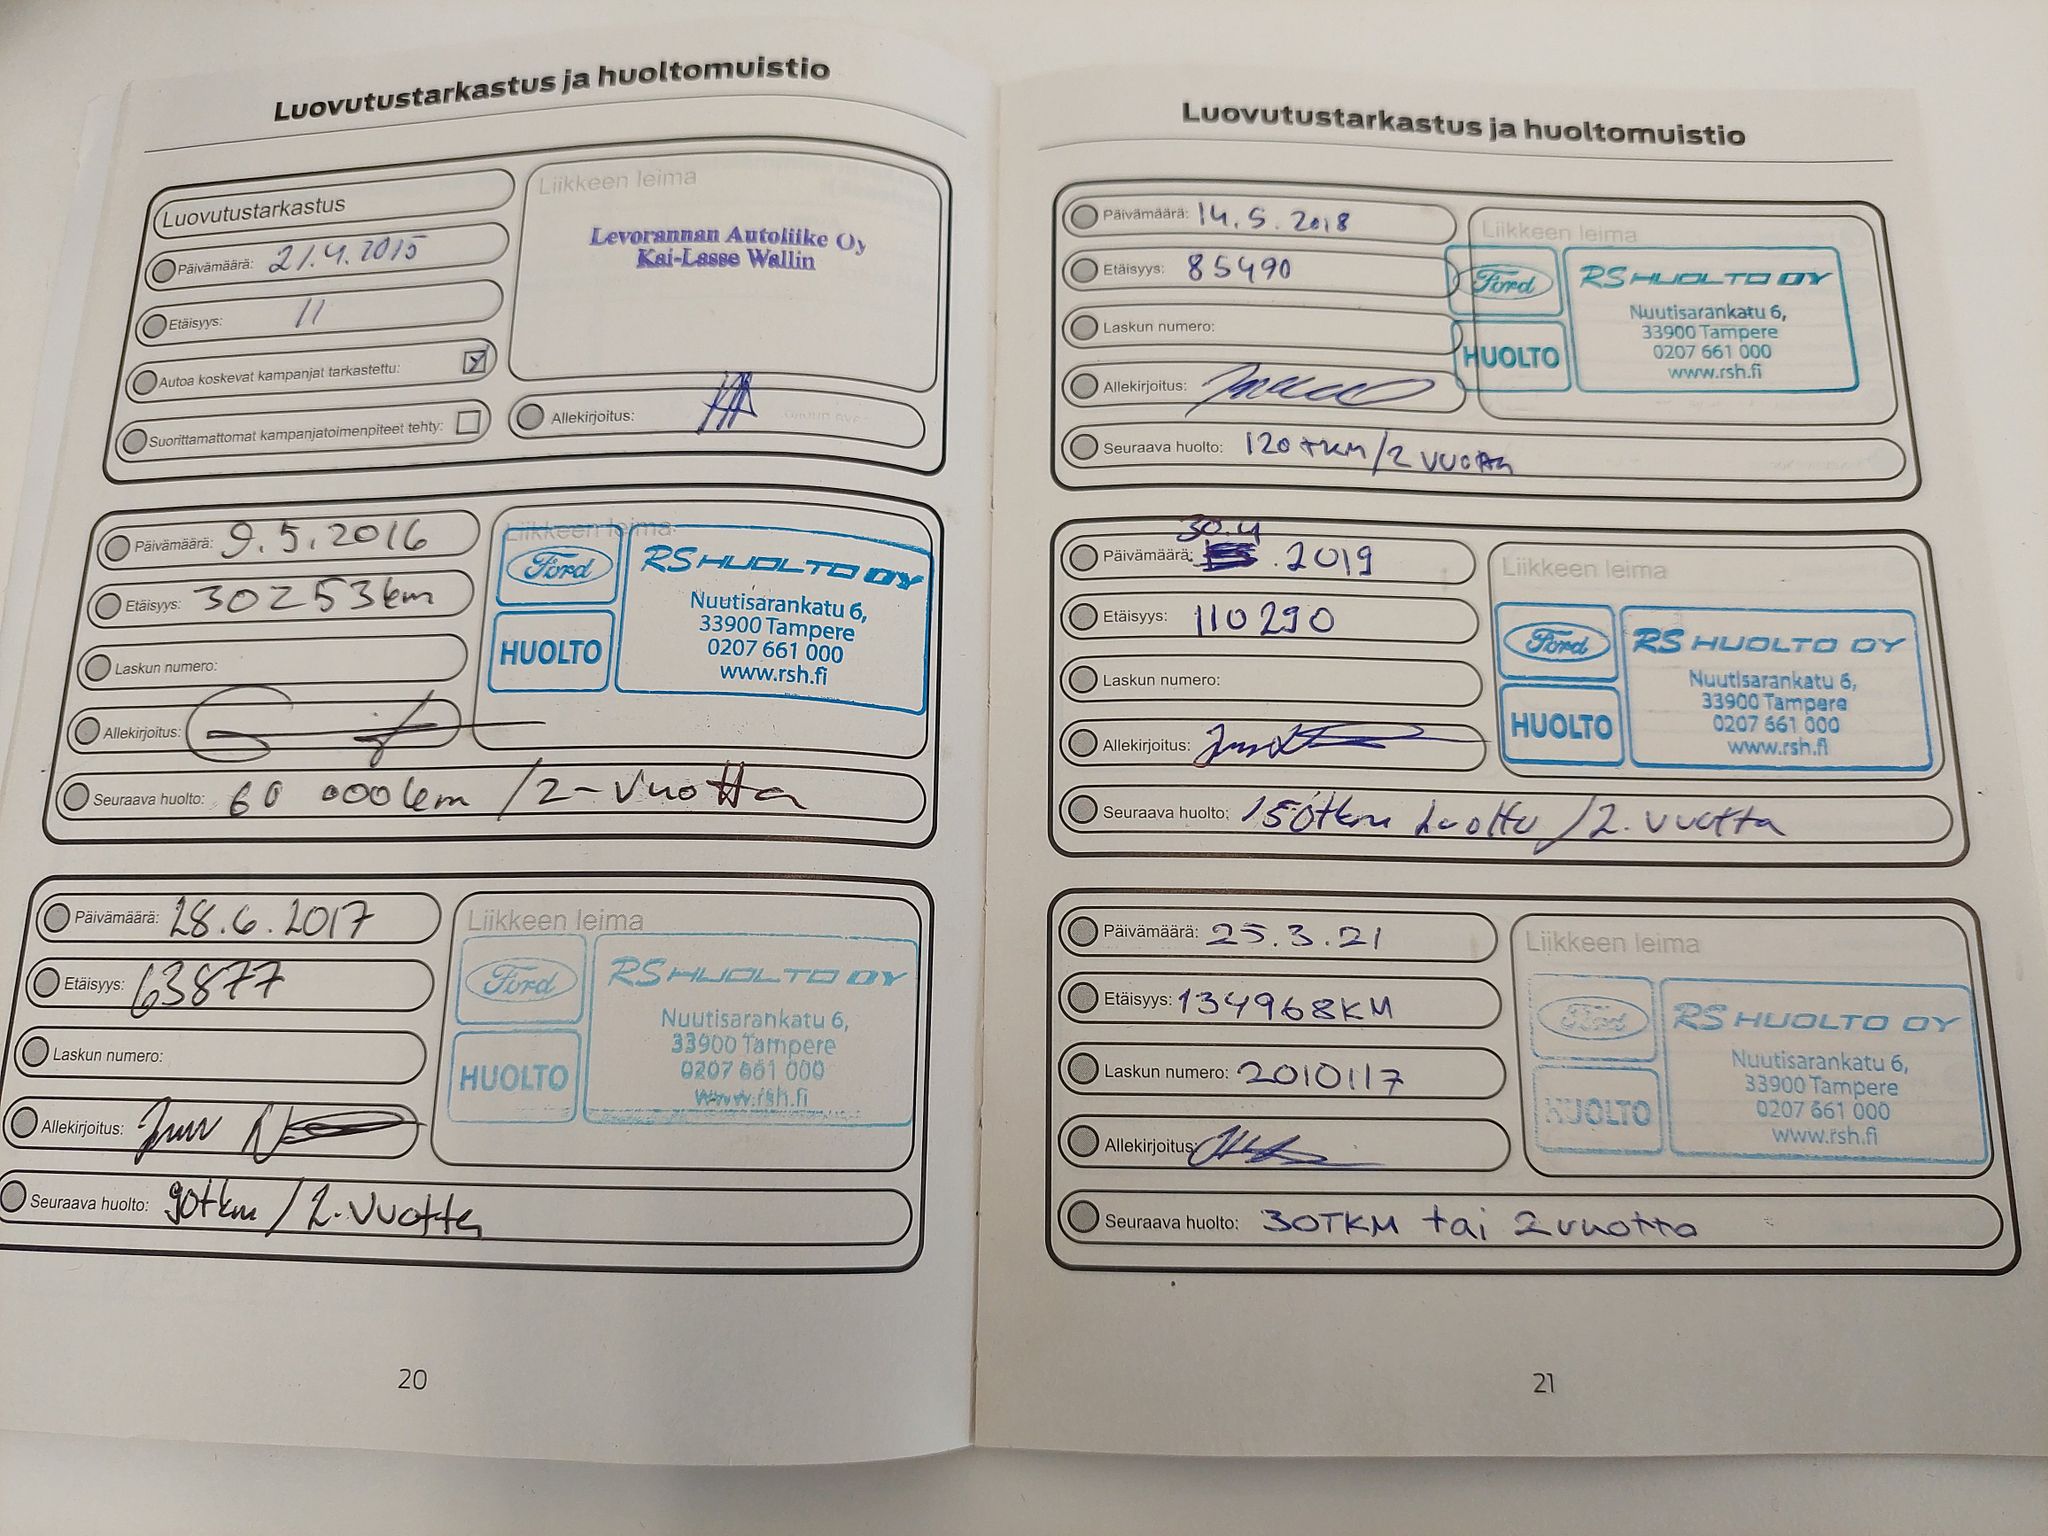 Luovutustarkastus ja huoltomuistio
Luovutustarkastus
Päivämäärä: 21.4.2015
Etäisyys: 11
Autoa koskevat kampanjat tarkastettu:
Suorittamattomat kampanjatoimenpiteet tehty:
Liikkeen leima
Levorannan Autoliike Oy
Kai-Lasse Wallin
Allekirjoitus:
Päivämäärä: 9.5.2016
Etäisyys: 30253km
Laskun numero:
Allekirjoitus:
Liikkeen leima
Ford
HUOLTO
RS HUOLTO OY
Nuutisarankatu 6,
33900 Tampere
0207 661 000
www.rsh.fi
Seuraava huolto: 60 000km / 2-vuotta
Päivämäärä: 28.6.2017
Etäisyys: 63877
Laskun numero:
Allekirjoitus:
Liikkeen leima
Ford
HUOLTO
RS HUOLTO OY
Nuutisarankatu 6,
33900 Tampere
0207 661 000
www.rsh.fi
Seuraava huolto: 90tkm / 2.vuotta
20
Luovutustarkastus ja huoltomuistio
Päivämäärä: 14.5.2018
Etäisyys: 85490
Laskun numero:
Allekirjoitus:
Liikkeen leima
Ford
HUOLTO
RS HUOLTO OY
Nuutisarankatu 6,
33900 Tampere
0207 661 000
www.rsh.fi
Seuraava huolto: 120 TKM / 2 vuotta
Päivämäärä: 30.4.2019
Etäisyys: 110290
Laskun numero:
Allekirjoitus:
Liikkeen leima
Ford
HUOLTO
RS HUOLTO OY
Nuutisarankatu 6,
33900 Tampere
0207 661 000
www.rsh.fi
Seuraava huolto: 150tkm huolto / 2.vuotta
Päivämäärä: 25.3.21
Etäisyys: 134968KM
Laskun numero: 2010117
Allekirjoitus:
Liikkeen leima
Ford
HUOLTO
RS HUOLTO OY
Nuutisarankatu 6,
33900 Tampere
0207 661 000
www.rsh.fi
Seuraava huolto: 30TKM tai 2 vuotta
21